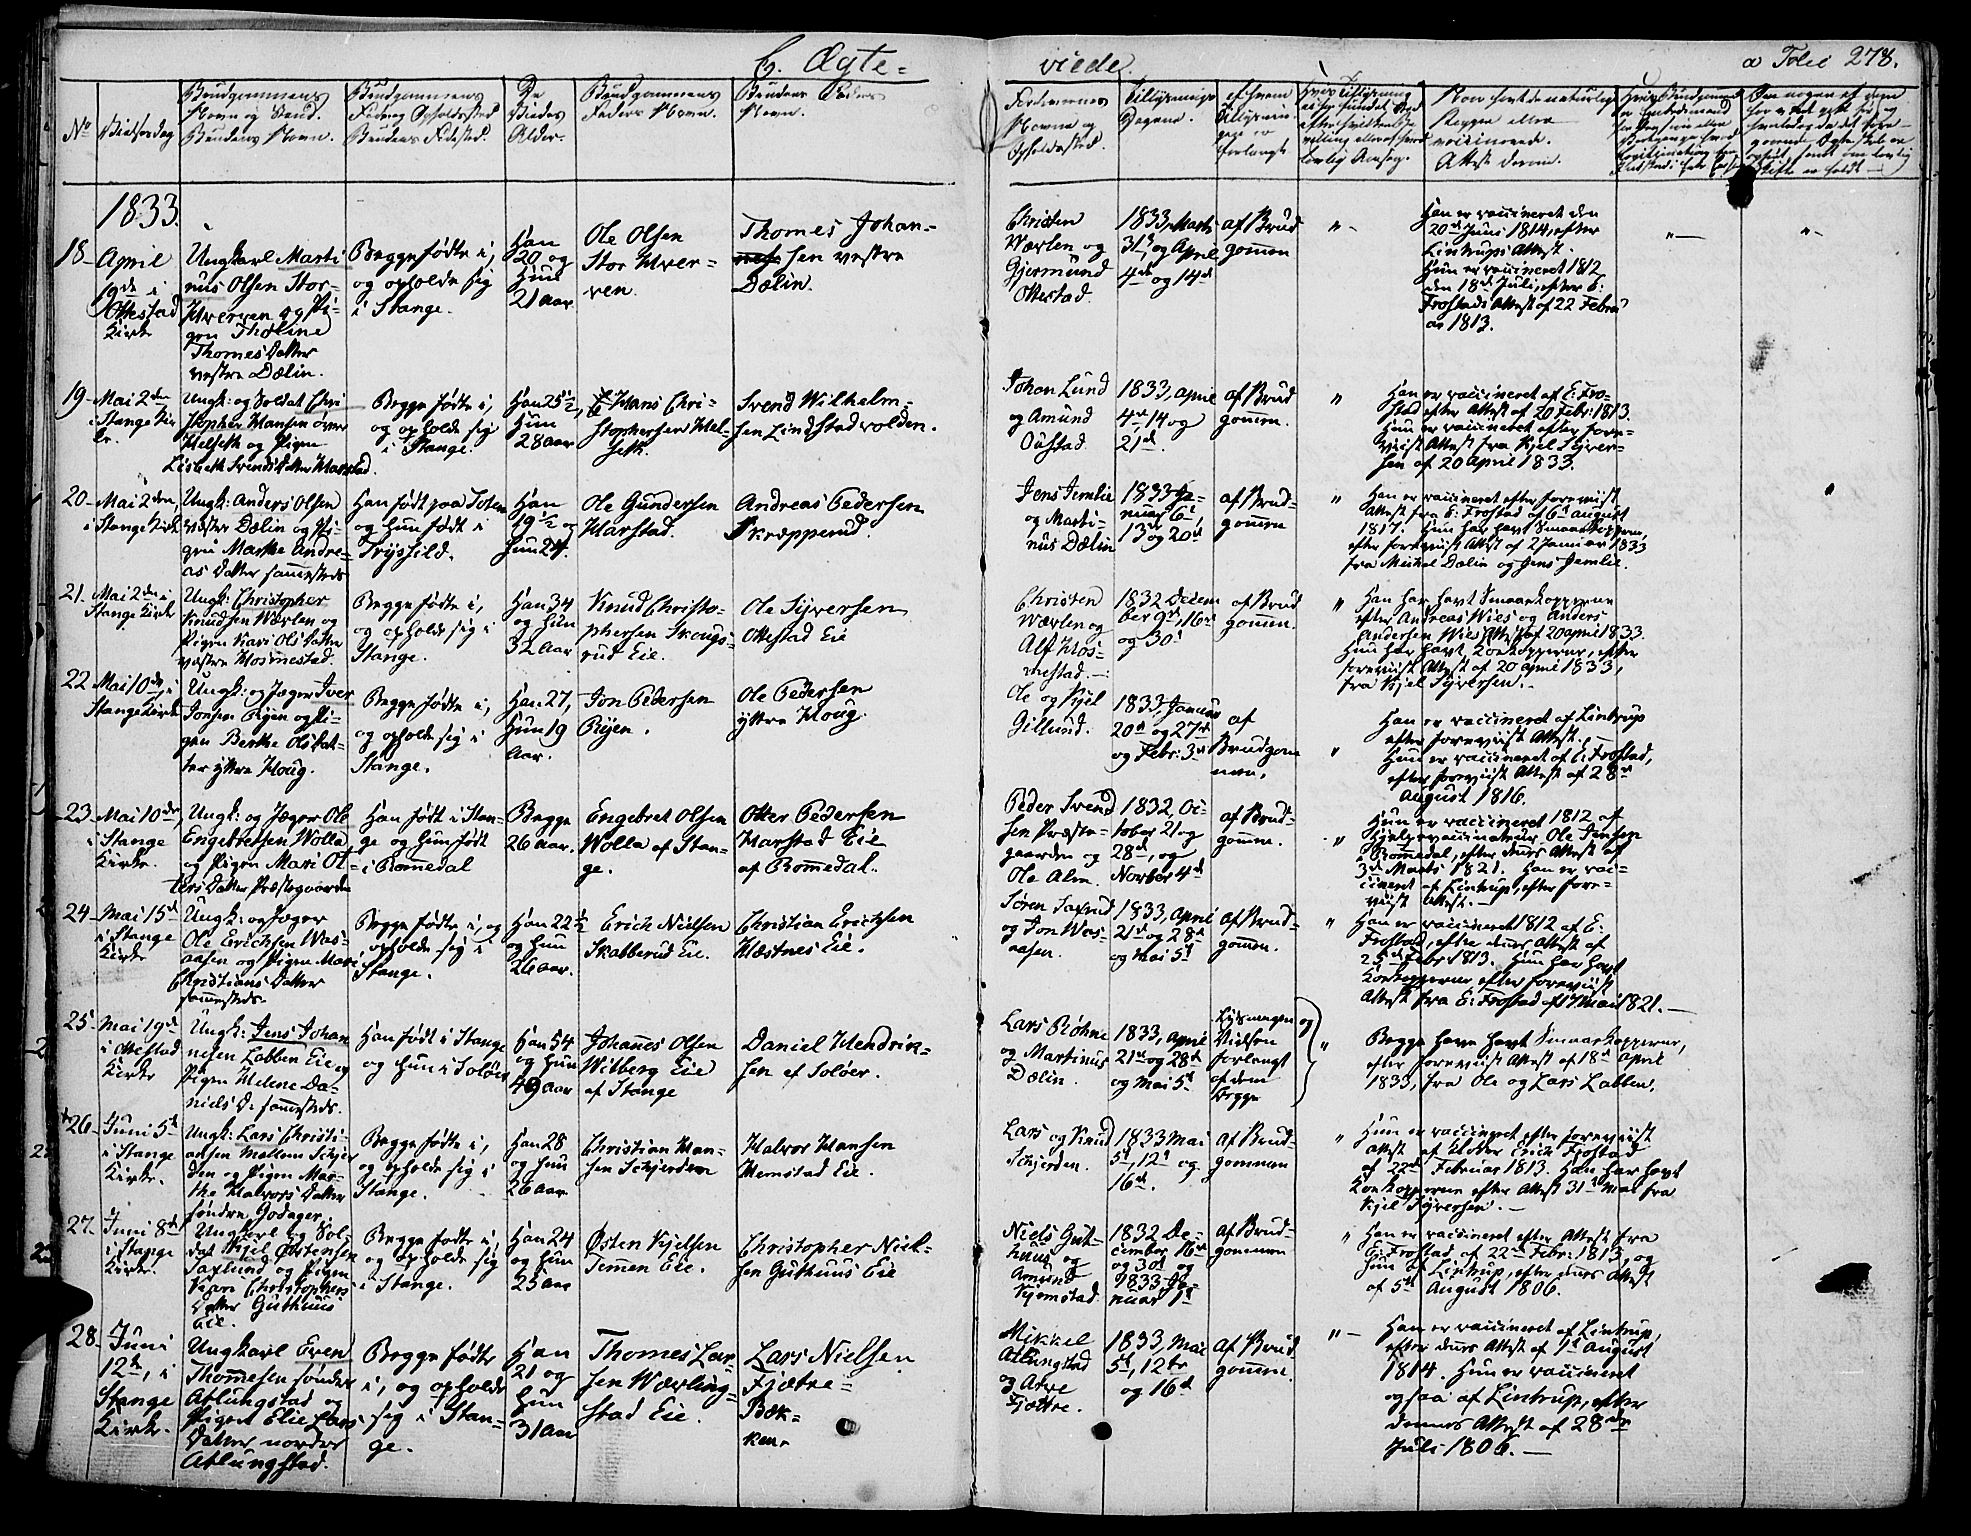 C. Ægte=
viede.
a Folei 278.
No
Vielsesdag
Brudgommens
Navn og Stand.
Brudens Navn.
Brudgommens
Fødeog Opholdssted
Brudens Fødested.
De
Viedes
Alder.
Brudgommens
Faders Navn.
Brudens Faders
Navn.
Forlovernes
Navne og
Opholdssted.
Tillysnings
Dagene.
af hvem
Tillysnin-
gen er
forlangt
1833.
18-
April
i
Ottestad
Kirke
Ungkarl Marti
nus Olsen Stor-
Hverven og Pi-
gen Tholine
Thomes Datter
vestre Dælin.
Begge fødte i,
og opholde sig
i Stange.
Han
20 og
Hun
21 aar
Ole Olsen
Stor Hver-
ven.
Thomes Johan-
sen vestre
Dælin.
Christen
Wærlen og
Gjermund
Ottestad.
1833, Marti
31t, og April
4de og 14d
af Brud
gomen
"-
Han er vaccineret den
20d Juni 1814, efter
Lintrups Attest.
Hun er vaccineret 1812
den 18d Juli, efter E:
Frostads Attest af 22 Febru
ar 1813.
"-
"-
19-
Mai 2den
i Stange Kir
ke.
Ungk: og Soldat Chri
stopher Hansen øvre
Helseth og Pigen
Lisbeth Svends Datter Harstad.
Begge fødte i,
og opholde sig
i Stange.
Han 25½,
Hun
28 aar
Hans Chri-
stophersen Hel-
seth.
Svend Wilhelm-
sen Lindstadvolden.
Johan Lund
og Amund
Oustad.
1833, April
4de 14 og
21d.
af Brud
gomm.
"
Han er vaccineret af E: Fro-
stad efter Attest af 20 Febr: 1813.
Hun er vaccineret efter fore-
viist Attest fra Kjel Syver-
sen af 20 April 1833.
20-
Mai 2den,
i Stange Kirke
Ungk: Anders Olsen
vestre Dælin og Pi-
gen Marthe Andre-
as Datter sammesteds
Han født paa Toten
og Hun født i
Trysild.
Han
19½ og
Hun 24.
Ole Gundersen
Harstad.
Andreas Pedersen
Skræpperud.
Jens Jemlie
og Marti-
nus Dælin
1833 Ja-
nuar 6t,
13 og 20d
af Brud-
gomen
"
Han er vaccineret efter foreviist
Attest fra E: Frostad af 6t August
1817. Hun har havt Smaakopperne,
efter foreviist Attest af 2 Januar 1833
fra Michel Dælin og Jens Jemlie.
21-
Mai 2den i
Stange Kirke
Ungk: Christopher
Knudsen Wærlen og
Pigen Kari Ols Datter
vestre Hosmestad.
Begge fødte i,
og opholde sig i
Stange.
Han 34
og Hun
32 aar
Knud Christo-
phersen Skougs-
rud Eie.
Ole Syversen
Ottestad Eie
Christen
Wærlen og
Alf Hos-
mestad.-
1832 Decem
ber 9d, 16de
og 30t
af Brud
gomm.
"
Han har havt Smaakopperne
efter Andreas Wies og Anders
Andersen Wies Attest af 20 april 1833.
Hun har havt Kokopperne, efter
foreviist Attest af 20 april 1833,
fra Kjel Syversen.-
22
Mai 10de, i
Stange Kirke
Ungk: og Jæger Iver
Jonsen Ryen og Pi-
gen Berthe Ols Dat-
ter ytre Houg.
Begge fødte i,
og opholde sig i
Stange.
Han 27,
Hun 19
aar.
Jon Pedersen
Ryen.
Ole Pedersen
ytre Houg.
Ole og Kjel
Gillund.
1833, Januar
20d og 27de
og Febr: 3de
af
Brudgom
men,
"
Han er vaccineret af Lintrup
efter foreviist Attest.
Hun er vaccineret af E: Frostad,
efter foreviist Attest af 28d
August 1816.
23-
Mai 10de,
i Stange
Kirke.
Ungk: og Jæger Ole
Engebretsen Wolla
og Pigen Mari Ot-
ters Datter Præstegaarden
Han født i Stan-
ge og Hun født
i Romedal
Begge
26 aar.
Engebret Olsen
Wolla af Stan-
ge.
Otter Pedersen
Harstad Eie
af Romedal.
Peder Svend
sen Præste-
gaarden og
Ole Alm.
1832, Oc-
tober 21 og
28d, og
Novber 4d
af Brud-
gomm.
"
Hun er vaccineret 1812 af
Hjelpevaccinateur Ole Jensen
i Romedal, efter dens Attest af
3d Marts 1821. Han er vac-
cineret af Lintrup, efter fore-
viist Attest.-
24-
Mai 15d
i Stange
Kirke
Ungk: og Jæger
Ole Erichsen Was-
aasen og Pigen Mari
Christians Datter
sammesteds-
Begge fødte i, og
opholde sig i
Stange.
Han 22½
og Hun
26 aar.
Erich Nielsen
Skabberud Eie.
Christian Erichsen
Hæstnes Eie.
Søren Saxrud
og Jon Was-
aasen.
1833, April
21d og 28d
og Mai 5t
af Brud-
gomen.
"
Han er vaccineret 1812 af E:
Frostad, efter dens Attest af
25d Febr 1813. Hun har havt
Kokopperne efter foreviist
Attest fra E: Frostad af 17 Mai 1821.-
25-
Mai 19d
i Ottestad
Kirke
Ungk: Jens Johan
nesen Labben Eie og
Pigen Helene Da-
niels D. sammesteds.
Han født i Stange
og Hun i Soløer
Han 54
og Hun
49 aar
Johanes Olsen
Wilberg Eie
af Stange
Daniel Hendrik-
sen af Soløer.
Lars Røhne
og Martinus
Dælin.
1833, April
21d og 28d
og Mai 5d
Lysningen og
Vielsen
forlangt
af dem
Begge
"
Begge have havt Smaakopperne,
efter foreviist Attest af 18d April
1833, fra Ole og Lars Labben,
+26-
Juni 5d
i Stange
Kirke.
Ungk: Lars Christi-
ansen Mellem Schjer
den og Pigen Mar-
the Halvors Datter
søndre Godager.
Begge fødte i,
og opholde sig i
Stange.
Han 28
og Hun
26 aar
Christian Han-
sen Schjerden
Halvor Hansen
Hemstad Eie.
Lars og Knud
Schjerden.
1833 Mai
5t, 12t og
16d.
af Brud-
gommen
"
Hun er vaccineret efter foreviist
Attest af Kloker Erich Frostad
af 22d Februar 1813. Han har havt
Kokopperne efter Attest 31t Mai fra
Kjel Syversen.-
27.
Juni 8d
i Stange
Kirke.
Ungkarl og Sol-
dat Kjel Østensen
Saxlund og Pigen
Kari Christophers
Datter Guthuus
Eie.
Begge fødte i,
og opholde sig
i Stange.
Han 24
og Hun
25 aar
Østen Kjelsen
Temmen Eie.
Christopher Niel-
sen Guthuus Eie
Niels Gut-
huus og
Amund
Kjemstad.
1832 De-
cember 16d
og 30t og
1833 Ja-
nuar 1t
af Brud-
gommen
"
Han er vaccineret efter Attest fra
E: Frostad af 22d Febr: 1813, og
Hun af Lintrup, efter dens Attest
af 5d August 1806.
28.
Juni
12te, i
Stange
Kirke.
Ungkarl Even
Thomesen søndre
Atlungstad og
Pigen Elie Lars
Datter nordre
Atlungstad.
Begge fødte
i, og opholde
sig i Stan-
ge.
Han
21 og
Hun
31 aar
Thomes Lar-
sen Wærling-
stad Eie.
Lars Nielsen
Fjætre-
Bæk-
ken.
Mikkel
Atlungstad
og Arve
Fjettre.
1833, Mai
5t, 12te
og 16d
af Brud
gomm.
"-
Han er vaccineret af Lintrup,
efter dens Attest af 1t August
1814. Hun er vaccineret
ogsaa af Lintrup, efter
dennes Attest af 28de
Juli 1806.-